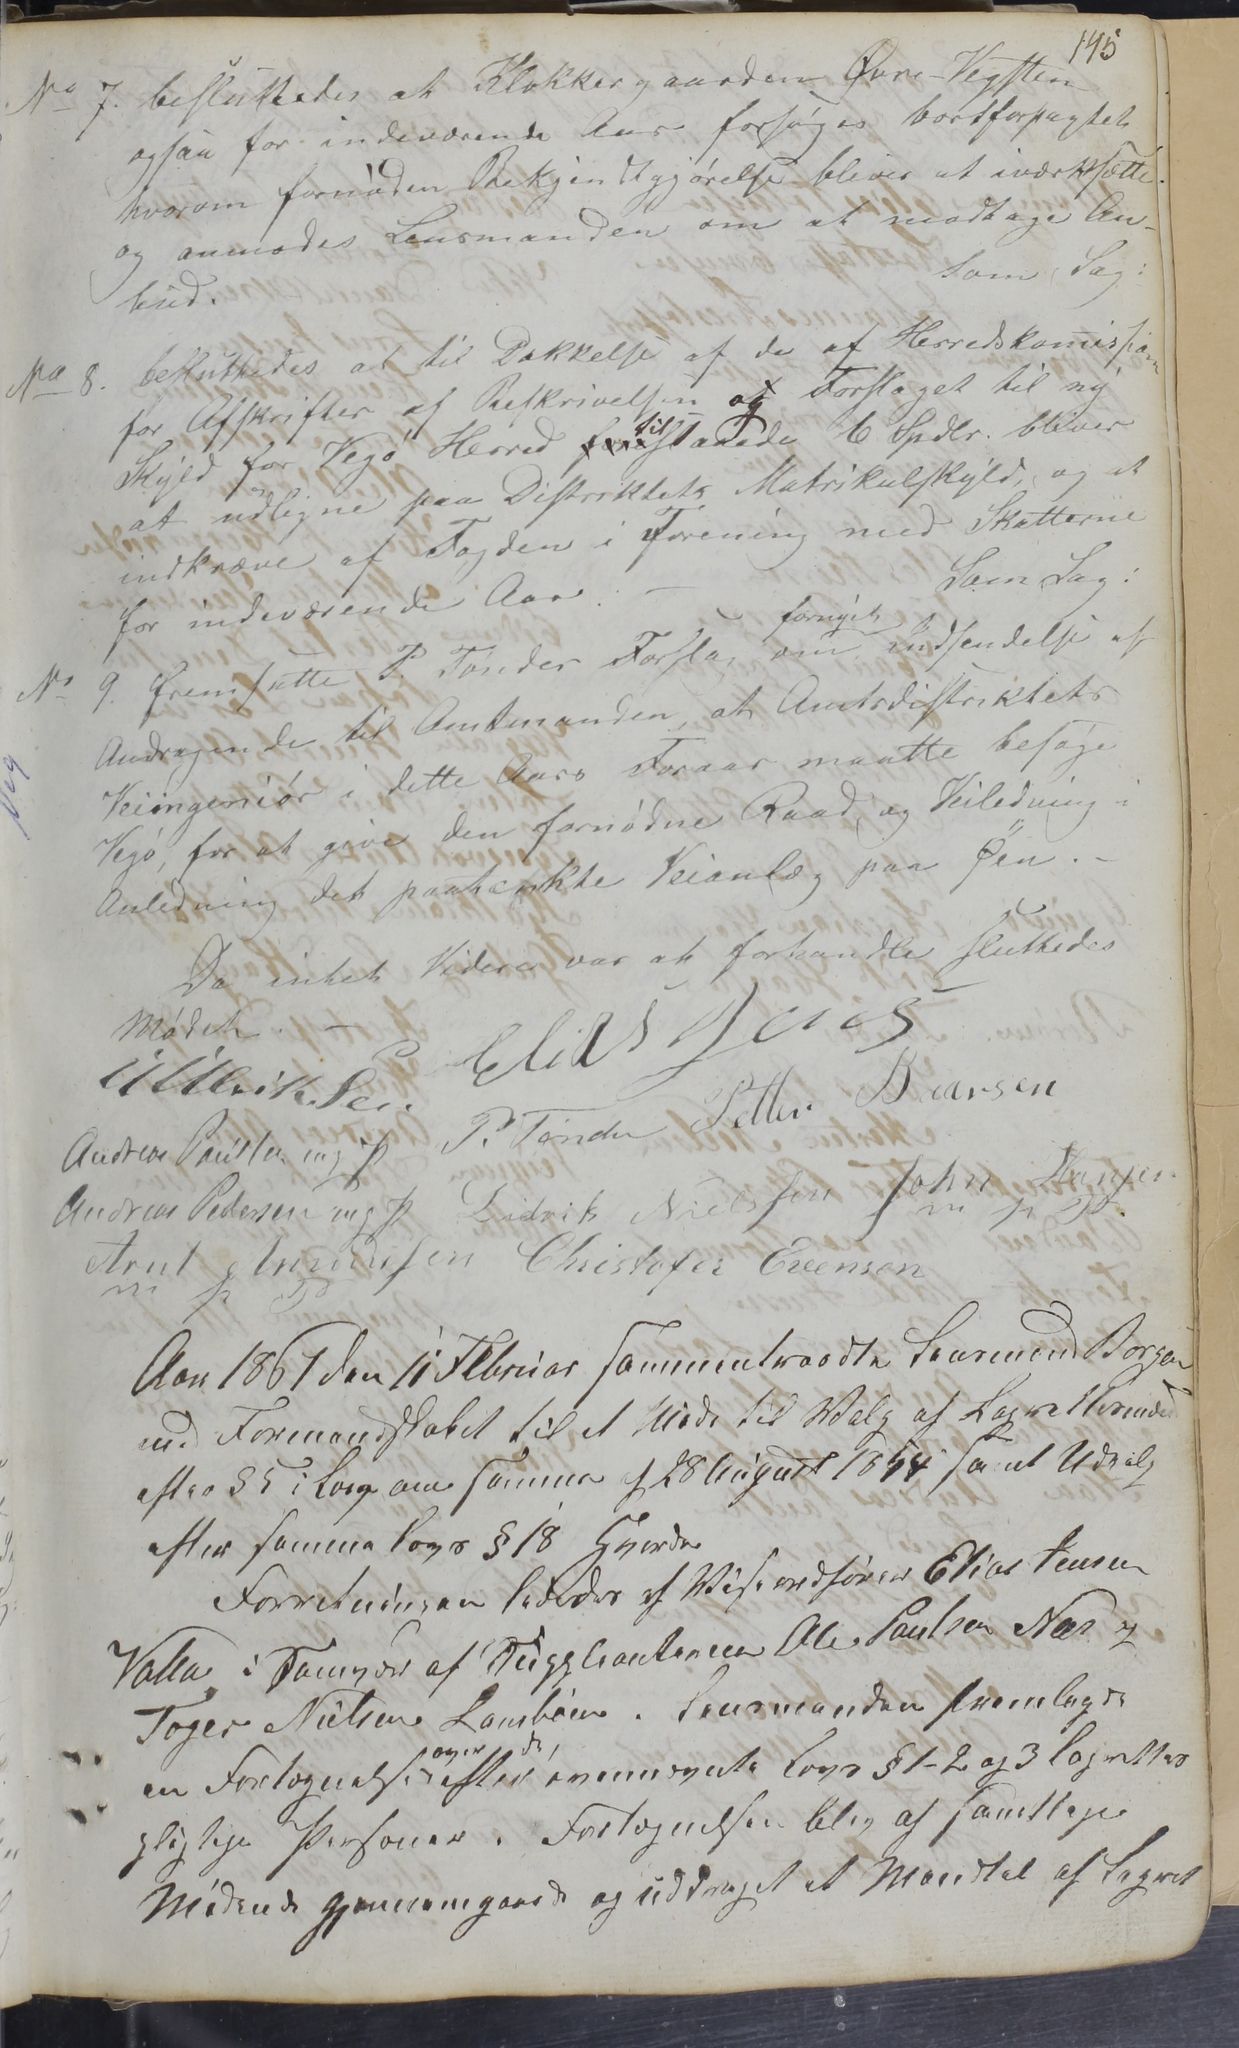 145
No 7. besluttedes at Klokkergaarden Øvre-Vegsten
ogsaa for indeværende Aar forsøges bortforpagtet
hvorom fornøden Bekjendtgjørelse bliver at iværksætte
og anmodes Lensmanden om at modtage An-
bud.
Som Sag:
No 8. besluttedes at til Dækkelse af de af Herredskomissionen
for Afskrifter af Beskrivelsen og Forslaget til ny
Skyld for Vegø Herred tilstaaede 6 Spdlr. bliver
at udligne paa Distriktets Matrikulskyld, og at
indkræve af Fogden i Forening med Skatterne
for indeværende Aar. —
Som Sag:
No 9. fremsatte P. Tønder Forslag om fornyet Indsendelse af
Andragende til Amtmanden, at Amtsdistriktets
Veiingeniør i dette Aars Foraar maatte besøge
Vegø, for at give den fornødne Raad og Veiledning i
Anledning det paatænkte Veianlæg paa Øen. –
Da intet Videre var at forhandle sluttedes
Mødet. –
Elias Jens
P. Tønder Petter Bearsen
Andreas Paulsen m p
Andreas Pedersen m p Didrik Nielssen John Hansen
m p P
Arnt Christofer Evensen
m p P
Aar 1867 den 11 Februar sammentraadte Lensmand Borgen
med Formandskabet til et Møde til Valg af Lagrettesmænd
efter § 5 i Lov om samme af 28 August 1854 samt Udvalg
efter samme Lovs § 18
Forretningen lededes af Viseordfører Elias Jensen
Valla i Farvær af Ole Paulsen Næs og
Toger Nielsen . Lensmanden fremlagde
en Fortegnelse over de, efter ovennævnte Lovs § 1-2 og 3 lagrettes
pligtige Personer. Fortegnelsen blev af samtlige
Mødende gjennemgaaede og uddraget et Mandtal af Lagret